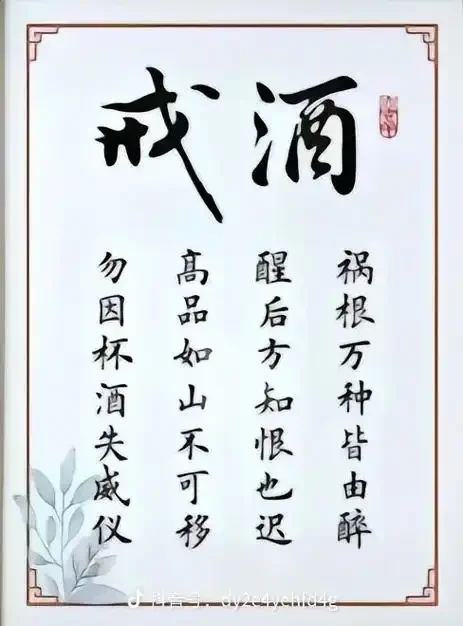 戒酒
祸根万种皆由醉
醒后方知恨也迟
高品如山不可移
勿因杯酒失威仪
抖音号：dy2e4ychfd4g